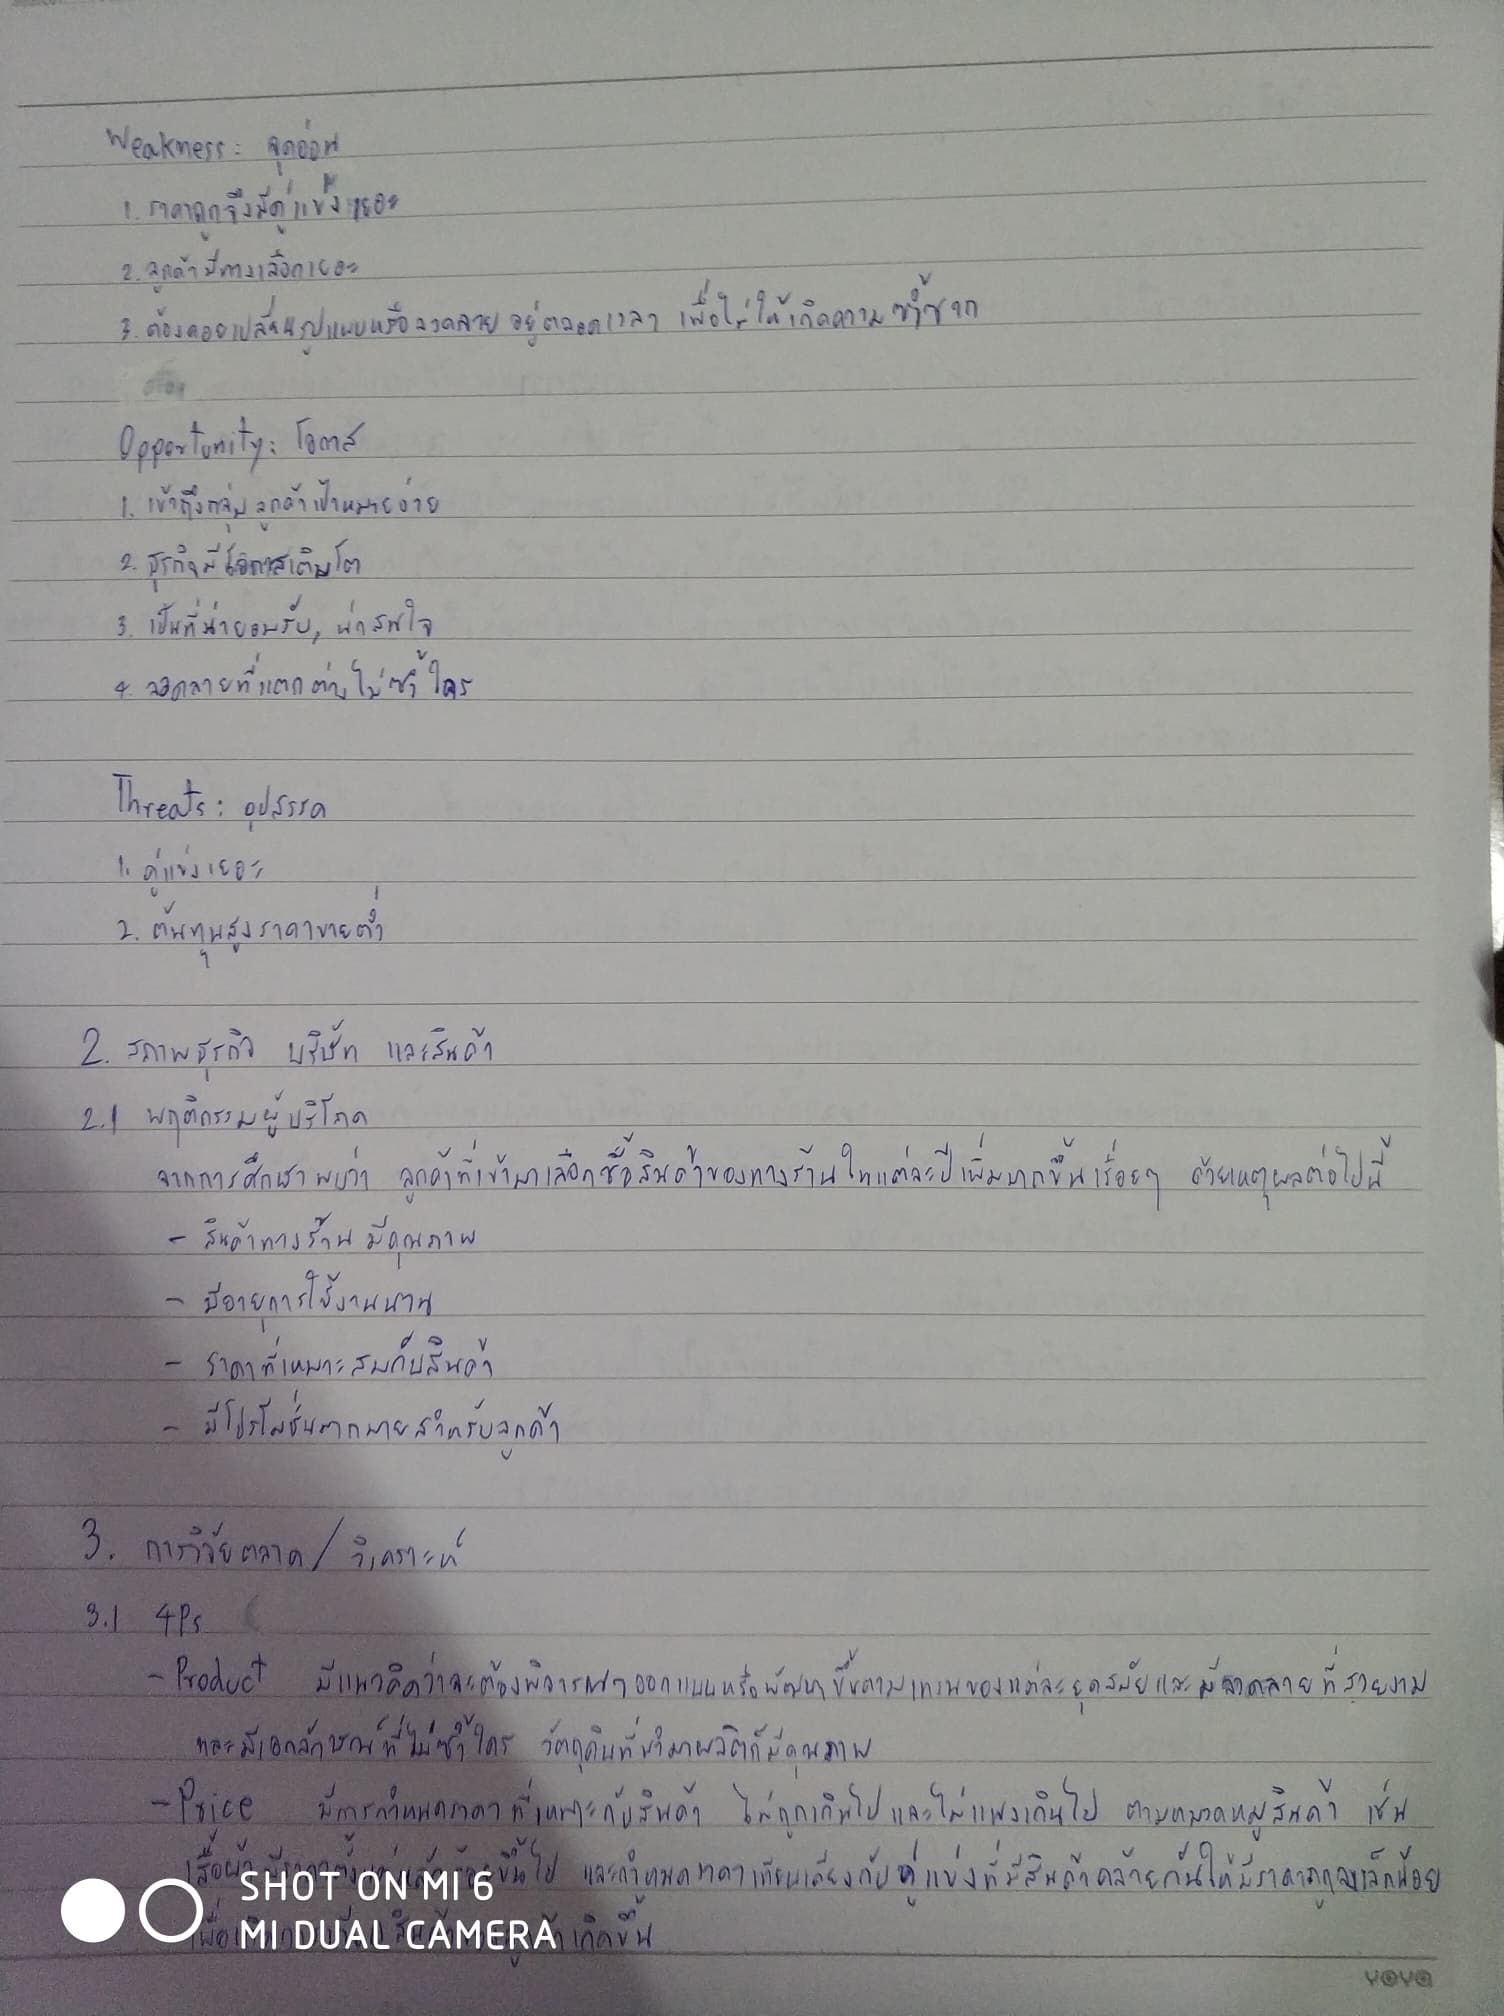 Weakness: จุดอ่อน
1. ราคาถูกจึงมีคู่แข่งเยอะ
2. ลูกค้ามีทางเลือกเยอะ
3. ต้องคอยเปลี่ยนรูปแบบหรือลวดลายอยู่ตลอดเวลา เพื่อไม่ให้เกิดความซ้ำซาก
Opportunity: โอกาส
1. เข้าถึงกลุ่มลูกค้าเป้าหมายง่าย
2. ธุรกิจมีโอกาสเติบโต
3. เป็นที่น่ายอมรับ, น่าสนใจ
4. ลวดลายที่แตกต่างไม่ซ้ำใคร
Threats: อุปสรรค
1. คู่แข่งเยอะ
2. ต้นทุนสูงราคาขายต่ำ
2. สภาพธุรกิจ บริษัท และสินค้า
2.1 พฤติกรรมผู้บริโภค
จากการศึกษาพบว่า ลูกค้าที่เข้ามาเลือกซื้อสินค้าของทางร้านในแต่ละปีเพิ่มมากขึ้นเรื่อยๆ ด้วยเหตุผลต่อไปนี้
- สินค้าทางร้านมีคุณภาพ
- มีอายุการใช้งานนาน
- ราคาที่เหมาะสมกับสินค้า
- มีโปรโมชั่นมากมายสำหรับลูกค้า
3. การวิจัยตลาด / วิเคราะห์
3.1 4Ps
- Product มีแนวคิดว่าจะต้องพิจารณาออกแบบหรือพัฒนาขึ้นตามเทรนของแต่ละยุคสมัยและมีลวดลายที่สวยงาม
และมีเอกลักษณ์ที่ไม่ซ้ำใคร วัตถุดิบที่นำมาผลิตก็มีคุณภาพ
- Price มีการกำหนดราคาที่เหมาะกับสินค้า ไม่ถูกเกินไปและไม่แพงเกินไป ตามหมวดหมู่สินค้า เช่น
เสื้อผ้า ขึ้นไป และกำหนดราคาเทียบเคียงกับคู่แข่งที่มีสินค้าคล้ายกันให้มีราคาถูกลงเล็กน้อย
เพื่อ เกิดขึ้น
SHOT ON MI 6
MI DUAL CAMERA
yoya